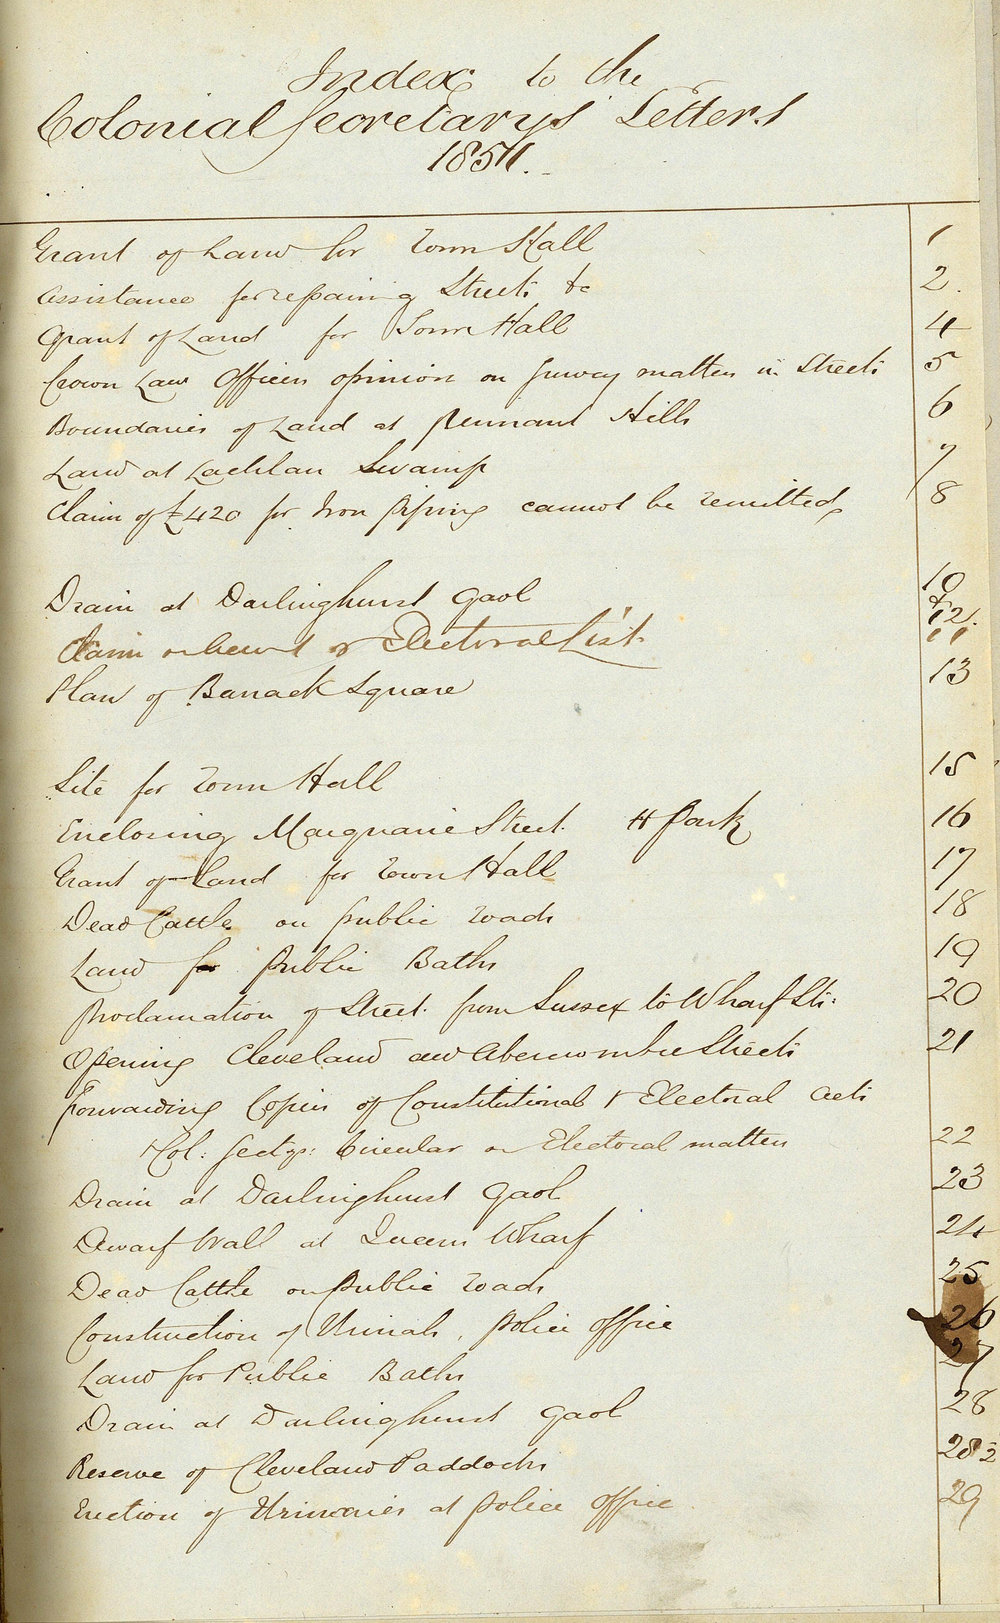 Index to the
Colonial Secretarys Letters
1857.
Grant of Land for Town Hall 1
Assistance for repairing Streets &c 2.
Grant of Land for Town Hall 4
Crown Law Officers opinion on Survey matters in Streets 5
Boundaries of Land at Pennant Hills 6
Land at Lachlan Swamp 7
Claim of £420 for Iron Piping cannot be remitted 8
Drain at Darlinghurst Gaol 10 & 12.
Claim on of Electoral List 11
Plan of Barrack Square 13
Site for Town Hall 15
Enclosing Macquarie Street. H Park 16
Grant of Land for Town Hall 17
Dead Cattle on public roads 18
Land for Public Baths 19
Proclamation of Street from Sussex to Wharf St: 20
Opening Cleveland and Abercrombie Streets 21
Forwarding Copies of Constitutional & Electoral Acts
Col: Sectys: Circular on Electoral matters 22
Drain at Darlinghurst Gaol 23
Dwarf Wall at Queens Wharf 24
Dead Cattle on Public roads 25
Construction of Urinals, Police Office 26
Land for Public Baths 27
Drain at Darlinghurst Gaol 28
Reserve of Cleveland Paddocks 28½
Erection of Urinaries at Police Office 29